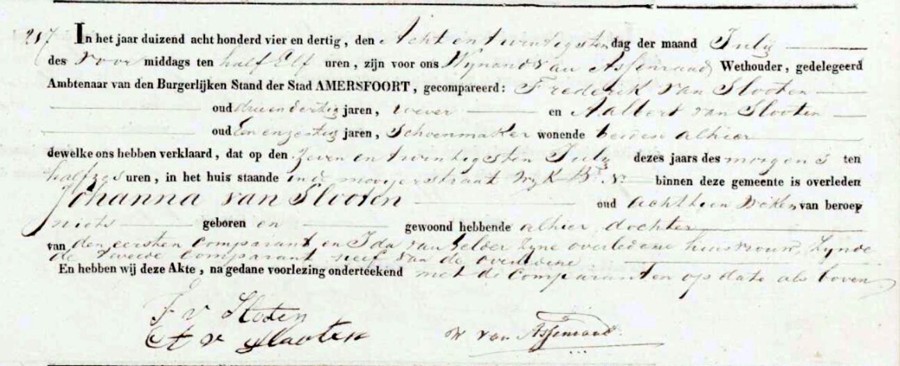 217 In het jaar duizend acht honderd vier en dertig, den Acht en twindigsten dag der maand July
des Voor middags ten half Elf uren, zijn voor ons Wijnand van Assenraad Wethouder, gedelegeerd
Ambtenaar van den Burgerlijken Stand der Stad AMERSFOORT, gecompareerd: Frederik van Slooten
oud drie en dertig jaren, wever en Aalbert van Slooten
oud Een en zestig jaren, Schoenmaker wonende beiden alhier
dewelke ons hebben verklaard, dat op den Zeven en twindigsten July dezes jaars des morgens ten
half zes uren, in het huis staande in d straat Wyk B N binnen deze gemeente is overleden
Johanna van Slooten oud achttien Weken van beroep
niets geboren en gewoond hebbende alhier, dochter
van den eersten Comparant en Ida van Gelder zyne overledene huisvrouw, Zynde
de tweede Comparant neef van de overledene
En hebben wij deze Akte, na gedane voorlezing onderteekend met de Comparanten op dato als boven
F v Sloten
A v Slooten
W van Assenraad